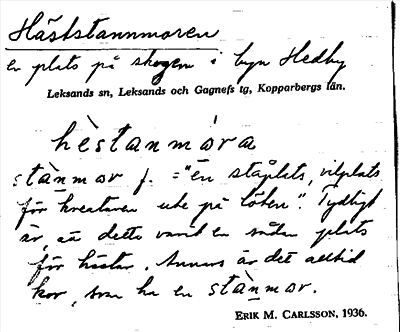 Häststannmoren
en plats på skogen i byn Hedby
Leksands sn, Leksands och Gagnefs tg, Kopparbergs län.
hèstanmóra
stànmor f. = "en ståplats, vilplats
för kreaturen ute på löten". Tydligt
är, att detta varit en sådan plats
för hästar. Annars är det alltid
kor, som ha en stànmor.
ERIK M. CARLSSON, 1936.